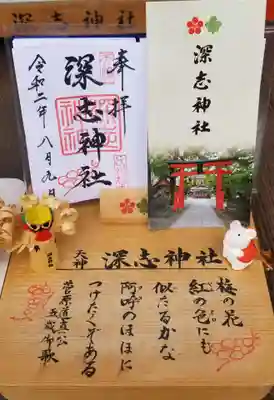 深志神社
奉拝
深志神社
令和二年八月九日
深志神社
天神
深志神社
梅の花
紅の色にも
似たるかな
阿呼のほほに
つけたくぞある
菅原道真公
五歳御歌